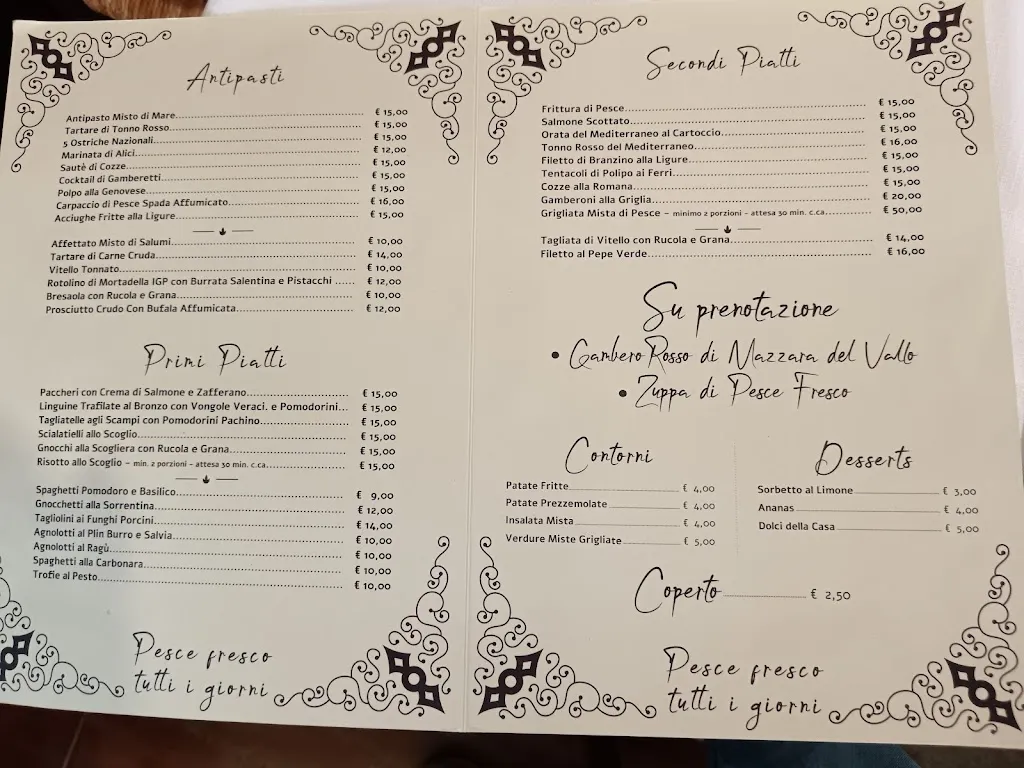 Antipasti
Antipasto Misto di Mare € 15,00
Tartare di Tonno Rosso € 15,00
5 Ostriche Nazionali € 15,00
Marinata di Alici € 12,00
Sautè di Cozze € 15,00
Cocktail di Gamberetti € 15,00
Polpo alla Genovese € 15,00
Carpaccio di Pesce Spada Affumicato € 16,00
Acciughe Fritte alla Ligure € 15,00
Affettato Misto di Salumi € 10,00
Tartare di Carne Cruda € 14,00
Vitello Tonnato € 10,00
Rotolino di Mortadella IGP con Burrata Salentina e Pistacchi € 12,00
Bresaola con Rucola e Grana € 10,00
Prosciutto Crudo Con Bufala Affumicata € 12,00
Primi Piatti
Paccheri con Crema di Salmone e Zafferano € 15,00
Linguine Trafilate al Bronzo con Vongole Veraci. e Pomodorini € 15,00
Tagliatelle agli Scampi con Pomodorini Pachino € 15,00
Scialatielli allo Scoglio € 15,00
Gnocchi alla Scogliera con Rucola e Grana € 15,00
Risotto allo Scoglio - min. 2 porzioni - attesa 30 min. c.ca € 15,00
Spaghetti Pomodoro e Basilico € 9,00
Gnocchetti alla Sorrentina € 12,00
Tagliolini ai Funghi Porcini € 14,00
Agnolotti al Plin Burro e Salvia € 10,00
Agnolotti al Ragù € 10,00
Spaghetti alla Carbonara € 10,00
Trofie al Pesto € 10,00
Pesce fresco
tutti i giorni
Secondi Piatti
Frittura di Pesce € 15,00
Salmone Scottato € 15,00
Orata del Mediterraneo al Cartoccio € 15,00
Tonno Rosso del Mediterraneo € 16,00
Filetto di Branzino alla Ligure € 15,00
Tentacoli di Polipo ai Ferri € 15,00
Cozze alla Romana € 15,00
Gamberoni alla Griglia € 20,00
Grigliata Mista di Pesce - minimo 2 porzioni - attesa 30 min. c.ca € 50,00
Tagliata di Vitello con Rucola e Grana € 14,00
Filetto al Pepe Verde € 16,00
Su prenotazione
• Gambero Rosso di Mazzara del Vallo
• Zuppa di Pesce Fresco
Contorni
Patate Fritte € 4,00
Patate Prezzemolate € 4,00
Insalata Mista € 4,00
Verdure Miste Grigliate € 5,00
Desserts
Sorbetto al Limone € 3,00
Ananas € 4,00
Dolci della Casa € 5,00
Coperto € 2,50
Pesce fresco
tutti i giorni